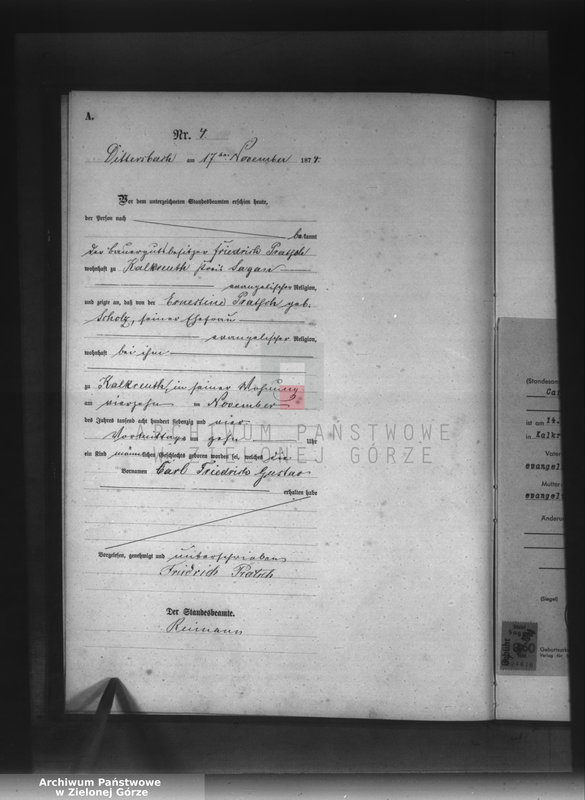 A.
Nr. 4
Dittersbach am 17ten November 1874.
Vor dem unterzeichneten Standesbeamten erschien heute,
der Person nach
bekannt
der Bauergutsbesitzer Friedrich Pratsch
wohnhaft zu Kalkreuth Kreis Sagan
evangelischer Religion,
und zeigte an, daß von der Ernestine Pratsch geb.
Scholz, seiner Ehefrau
evangelischer Religion,
wohnhaft bei ihm
zu Kalkreuth in seiner Wohnung
am vierzehn ten November
des Jahres tausend acht hundert siebenzig und vier
Vormittags zehn Uhr
ein Kind männlichen Geschlechts geboren worden sei, welches die
Vornamen Carl Friedrich Gustav
erhalten habe
Vorgelesen, genehmigt und unterschrieben
Friedrich Pratsch
Der Standesbeamte.
Reimann
ARCHIWUM PAŃSTWOWE
W ZIELONEJ GÓRZE
(Standesam
Ca
ist am 14.
in Kalk
Vater
evangel
Mutter
evangel
Änderun
(Siegel)
Gebühr
Geburtsurk
Verlag für
Archiwum Państwowe
w Zielonej Górze